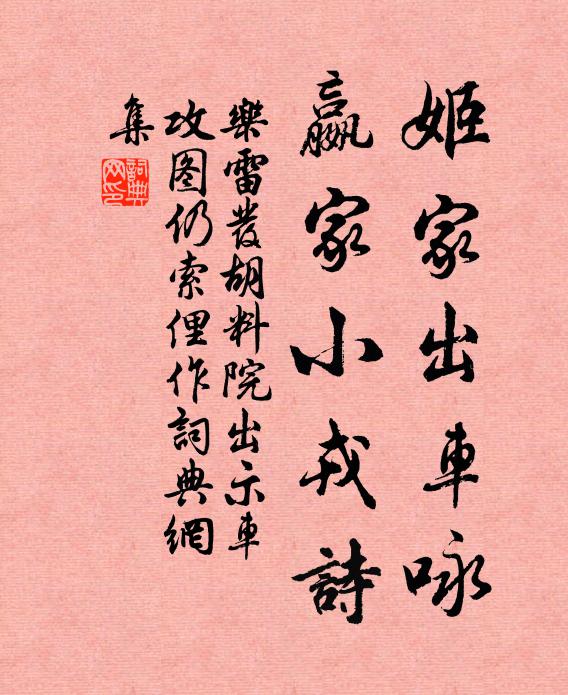 姬家出車咏
嬴家小戎詩
樂雷發胡料院出示車
攻图仍索俚作詞典網
集
詞典
网印